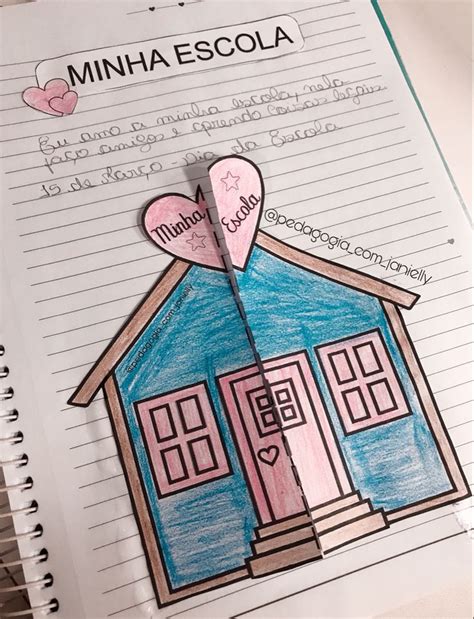 MINHA ESCOLA
Eu amo a minha escola, nela
faço amigos e aprendo coisas legais.
15 de Março - Dia da Escola
Minha Escola
@pedagogia_com_janielly
@pedagogia_com_janielly